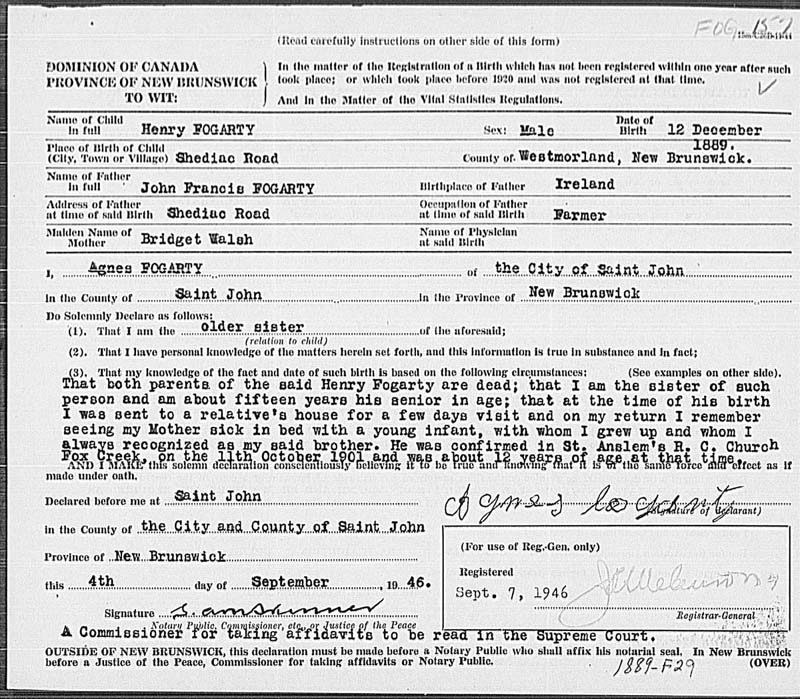 FOG 157
(Read carefully instructions on other side of this form)
DOMINION OF CANADA
PROVINCE OF NEW BRUNSWICK
TO WIT:
In the matter of the Registration of a Birth which has not been registered within one year after such
took place; or which took place before 1920 and was not registered at that time.
And in the Matter of the Vital Statistics Regulations.
Name of Child in full Henry FOGARTY Sex: Male Date of Birth 12 December 1889.
Place of Birth of Child (City, Town or Village) Shediac Road County of Westmorland, New Brunswick.
Name of Father in full John Francis FOGARTY Birthplace of Father Ireland
Address of Father at time of said Birth Shediac Road Occupation of Father at time of said Birth Farmer
Maiden Name of Mother Bridget Walsh Name of Physician at said Birth
I, Agnes FOGARTY of the City of Saint John
in the County of Saint John in the Province of New Brunswick
Do Solemnly Declare as follows:
(1). That I am the older sister of the aforesaid;
(relation to child)
(2). That I have personal knowledge of the matters herein set forth, and this information is true in substance and in fact;
(3). That my knowledge of the fact and date of such birth is based on the following circumstances: (See examples on other side).
That both parents of the said Henry Fogarty are dead; that I am the sister of such
person and am about fifteen years his senior in age; that at the time of his birth
I was sent to a relative's house for a few days visit and on my return I remember
seeing my Mother sick in bed with a young infant, with whom I grew up and whom I
always recognized as my said brother. He was confirmed in St. Anslem's R. C. Church
Fox Creek, on the 11th October 1901 and was about 12 years of age at that time.
AND I MAKE this solemn declaration conscientiously believing it to be true and knowing that it is of the same force and effect as if
made under oath.
Declared before me at Saint John
Agnes Fogarty
(Signature of declarant)
in the County of the City and County of Saint John
Province of New Brunswick
this 4th day of September, 1946.
(For use of Reg.-Gen. only)
Registered
Sept. 7, 1946
Registrar-General
Signature
Notary Public, Commissioner, etc., or Justice of the Peace
A Commissioner for taking affidavits to be read in the Supreme Court.
OUTSIDE OF NEW BRUNSWICK, this declaration must be made before a Notary Public who shall affix his notarial seal. In New Brunswick
before a Justice of the Peace, Commissioner for taking affidavits or Notary Public. (OVER)
1889-F29